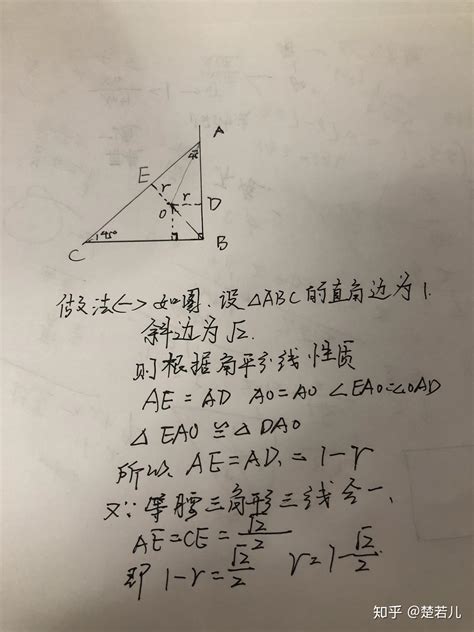 A
E
r
r
D
O
45°
C
B
做法<一> 如图,设△ABC的直角边为1.
斜边为√2.
则根据角平分线性质
AE=AD AO=AO ∠EAO=∠OAD
△EAO≌△DAO
所以, AE=AD,=1-r
又∵等腰三角形三线合一,
AE=CE=√2/2
即 1-r=√2/2 r=1-√2/2
知乎 @楚若儿